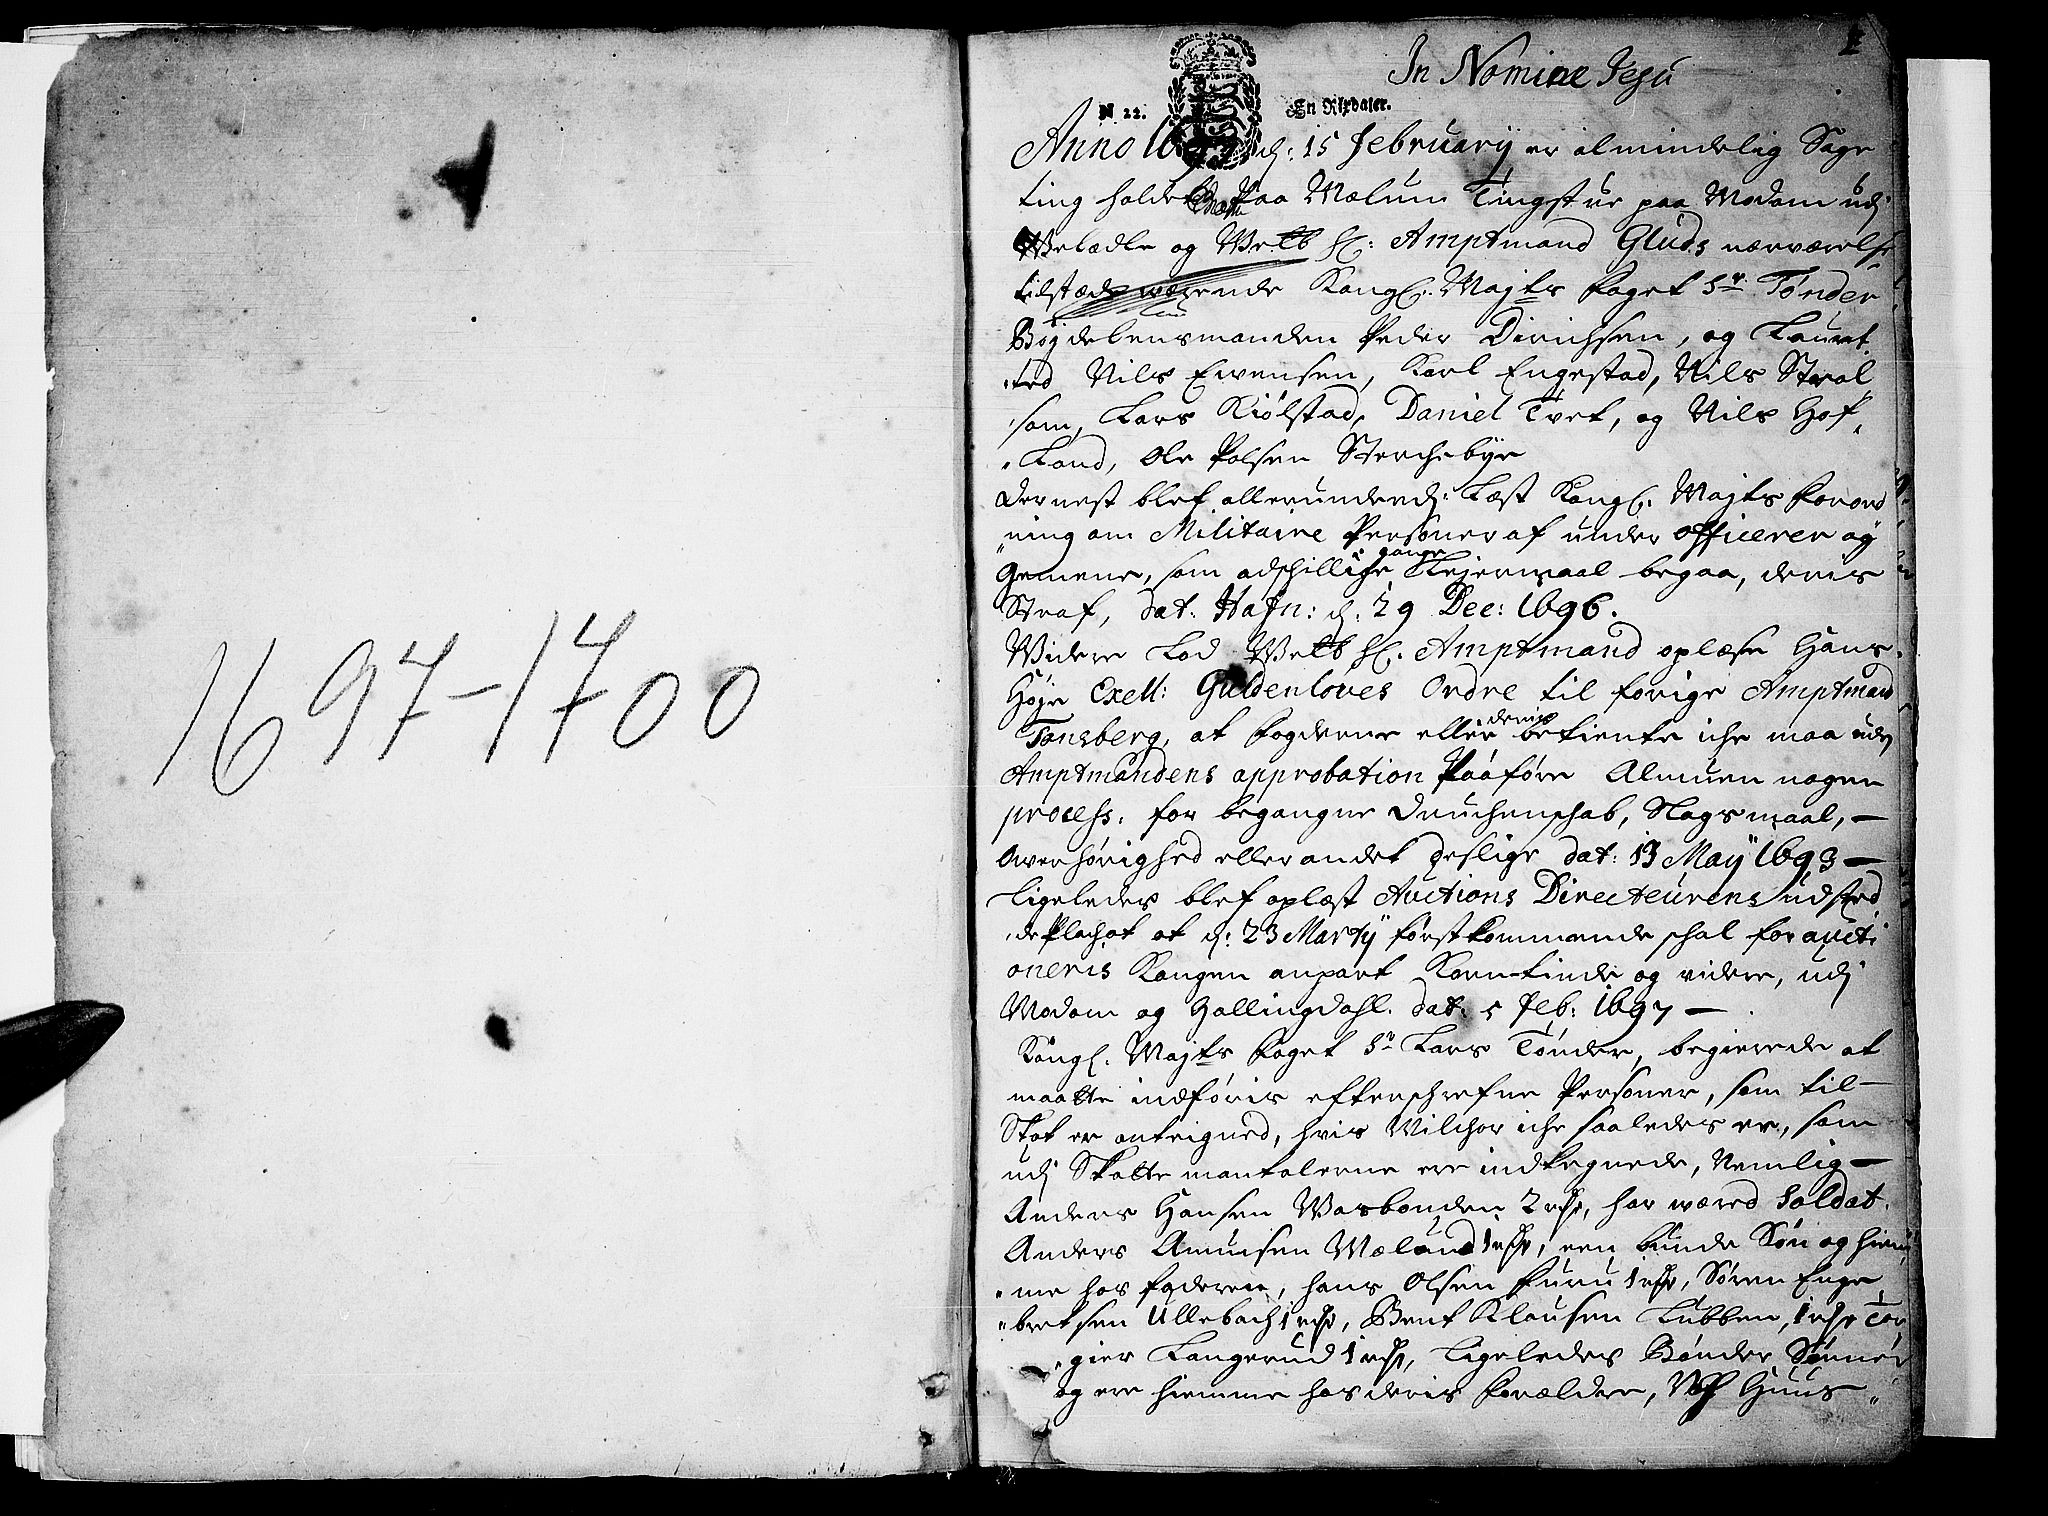 1697-1700
1
In Nomine Jesu
N 22. En Rixdaler.
Anno 1697 d: 15 February er almindelig Sage
ting holdet paa Mælum Tingstue paa Modom udj
Welædle og Welb H: Amptmand Gluds nærværelse
tilstæde wærende Kongl: Mayts Foget Sr. Tønder
Bøgdelensmanden Peder Dirichsen, og Lauret
ted Nils Ewensen, Karl Engestad, Nils Stral
som, Lars Kiølstad, Daniel Tvet, og Nils Hof
Land, Ole Polsen Sterchebye
Dernest blef allerunderd: Læst Kongl: Mayts Forord
ning om Militaire Personer af under officerer og
Gemene, som adschillige gange Lejermaal begaa, deris
Straf, dat: Hafn: d: 29 Dec: 1696.
Widere Lod Welb H: Amptmand oplæse Hans
Høye Exell: Guldenløves Ordre til forige Amptmand
Tonsberg, at Fogderne eller deris betiente iche maa uden
Amptmandens approbation Paaføre Almuen nogen
process: for begangne Druchenschab, Slagsmaal, —
Overhørighed eller andet deslige dat: 13 May 1693 —
Ligeledes blef oplæst Auctions Directeurens udsted
de Plachat at d: 23 Marty førstkommende schal foraucti
oneris Kongen anpart Korn-tinde og videre, udj
Modom og Hallingdahl. dat: 5 Feb: 1697 —
Kongl: Mayts Foget Sr Lars Tønder, begierede at
maatte indføris efterschrefne Personer, som til-
Skat er anteigned, hvis Wilchor iche saaledes er, som
udj Skatte mantalerne ere indtegnede, Nemlig —
Anders Hansen Wasbonden 2 rdr, har wæred Soldat.
Anders Amunsen Mælund 1 rdr, een bunde Søn og hiem
me hos foderen, hans Olsen Furu 1 rdr, Søren Enge
bretsen Ullebach 1 rdr, Bent Klausen Lubben, 1 rdr Tor
gier Langerud 1 rdr, Ligeledes Bønder Sønner
og ere hiemme hos deris Forældre, Huus